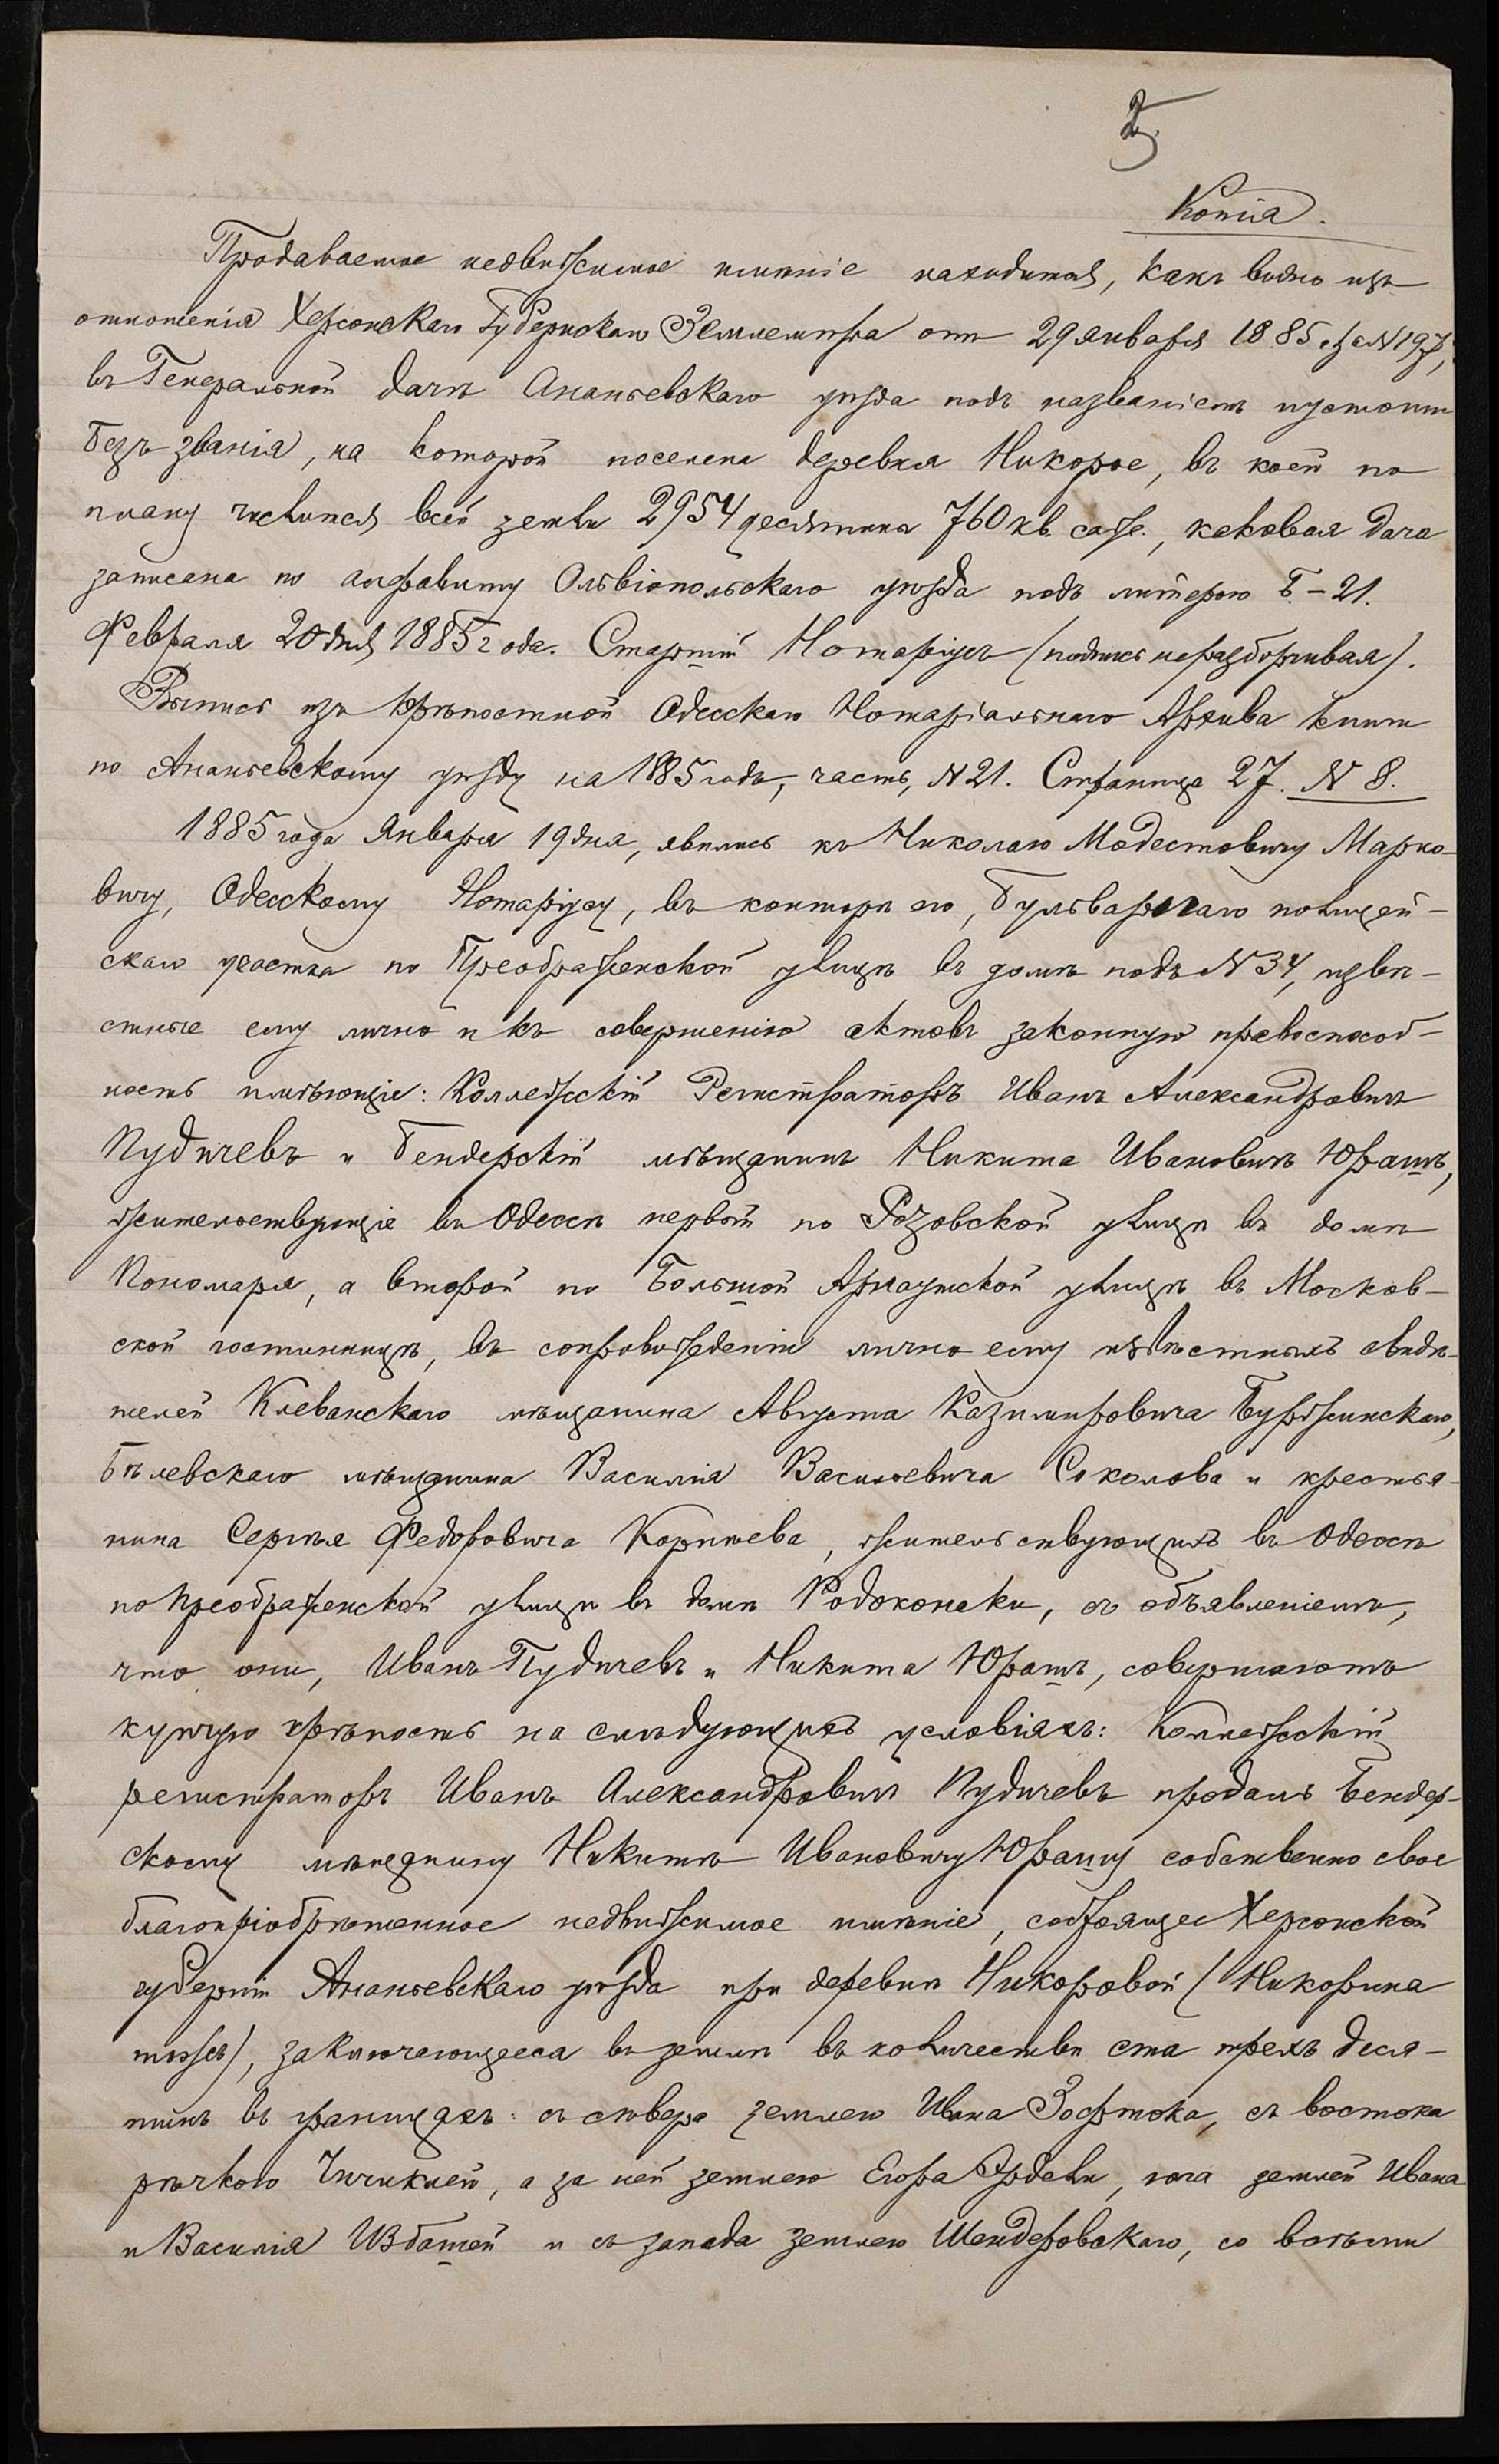 Копія.
Продаваемое недвижимое имѣніе находится, какъ видно изъ
отношенія Херсонскаго Губернскаго Землемѣра отъ 29 января 1885 г. за №197,
въ Генеральной дачѣ Ананьевскаго уѣзда подъ названіемъ пустоши
безъ званія, на которой поселена деревня Никорое, въ коей по
плану числится всей земли 2954 десятины 760 кв. саж., каковая дача
записана по алфавиту Ольвіопольскаго уѣзда подъ литерою Б.-21.
Февраля 20 дня 1885 года. Старшій Нотаріусъ (подпись неразборчивая).
Выпись изъ крѣпостной Одесскаго Нотаріальнаго Архива книги
по Ананьевскому уѣзду на 1885 годъ, часть, №21. Страница 27. № 8.
1885 года Января 19 дня, явились къ Николаю Модестовичу Марко-
вичу, Одесскому Нотаріусу, въ конторѣ его, Бульварнаго полицей-
скаго участка по Преображенской улицѣ въ домѣ подъ №34, извѣ-
стные ему лично и къ совершенію актовъ законную правоспособ-
ность имѣющіе: Коллежскій Регистраторъ Иванъ Александровичъ
Пудичевъ и Бендерскій мѣщанинъ Никита Ивановичъ Юрашъ,
жительствующіе въ Одессѣ первый по Розовской улицѣ въ домѣ
Пономаря, а второй по Большой Арнаутской улицѣ въ Москов-
ской гостинницѣ, въ сопровожденіи лично ему извѣстныхъ свидѣ-
телей Клеванскаго мѣщанина Августа Казимировича Буржинскаго,
Бѣлевскаго мѣщанина Василія Васильевича Соколова и крестья-
нина Сергѣя Федоровича Корнѣева, жительствующихъ въ Одессѣ
по Преображенской улицѣ въ домѣ Родоконаки, съ объявленіемъ,
что они, Иванъ Пудичевъ и Никита Юрашъ, совершаютъ
купчую крѣпость на слѣдующихъ условіяхъ: Коллежскій
регистраторъ Иванъ Александровичъ Пудичевъ продалъ Бендер-
скому мѣщанину Никитѣ Ивановичу Юрашу собственно свое
благопріобрѣтенное недвижимое имѣніе, состоящее Херсонской
губерніи Ананьевскаго уѣзда при деревнѣ Никоровой (Никорина
тожъ), заключающееся въ землѣ въ количествѣ ста трехъ деся-
тинъ въ границахъ: съ сѣвера землею Ивана Зосртока, съ востока
рѣчкою Чичиклей, а за ней землею Егора Эрдели, юга землей Ивана
и Василія Избашей и съ запада землею Шендеровскаго, со всѣми